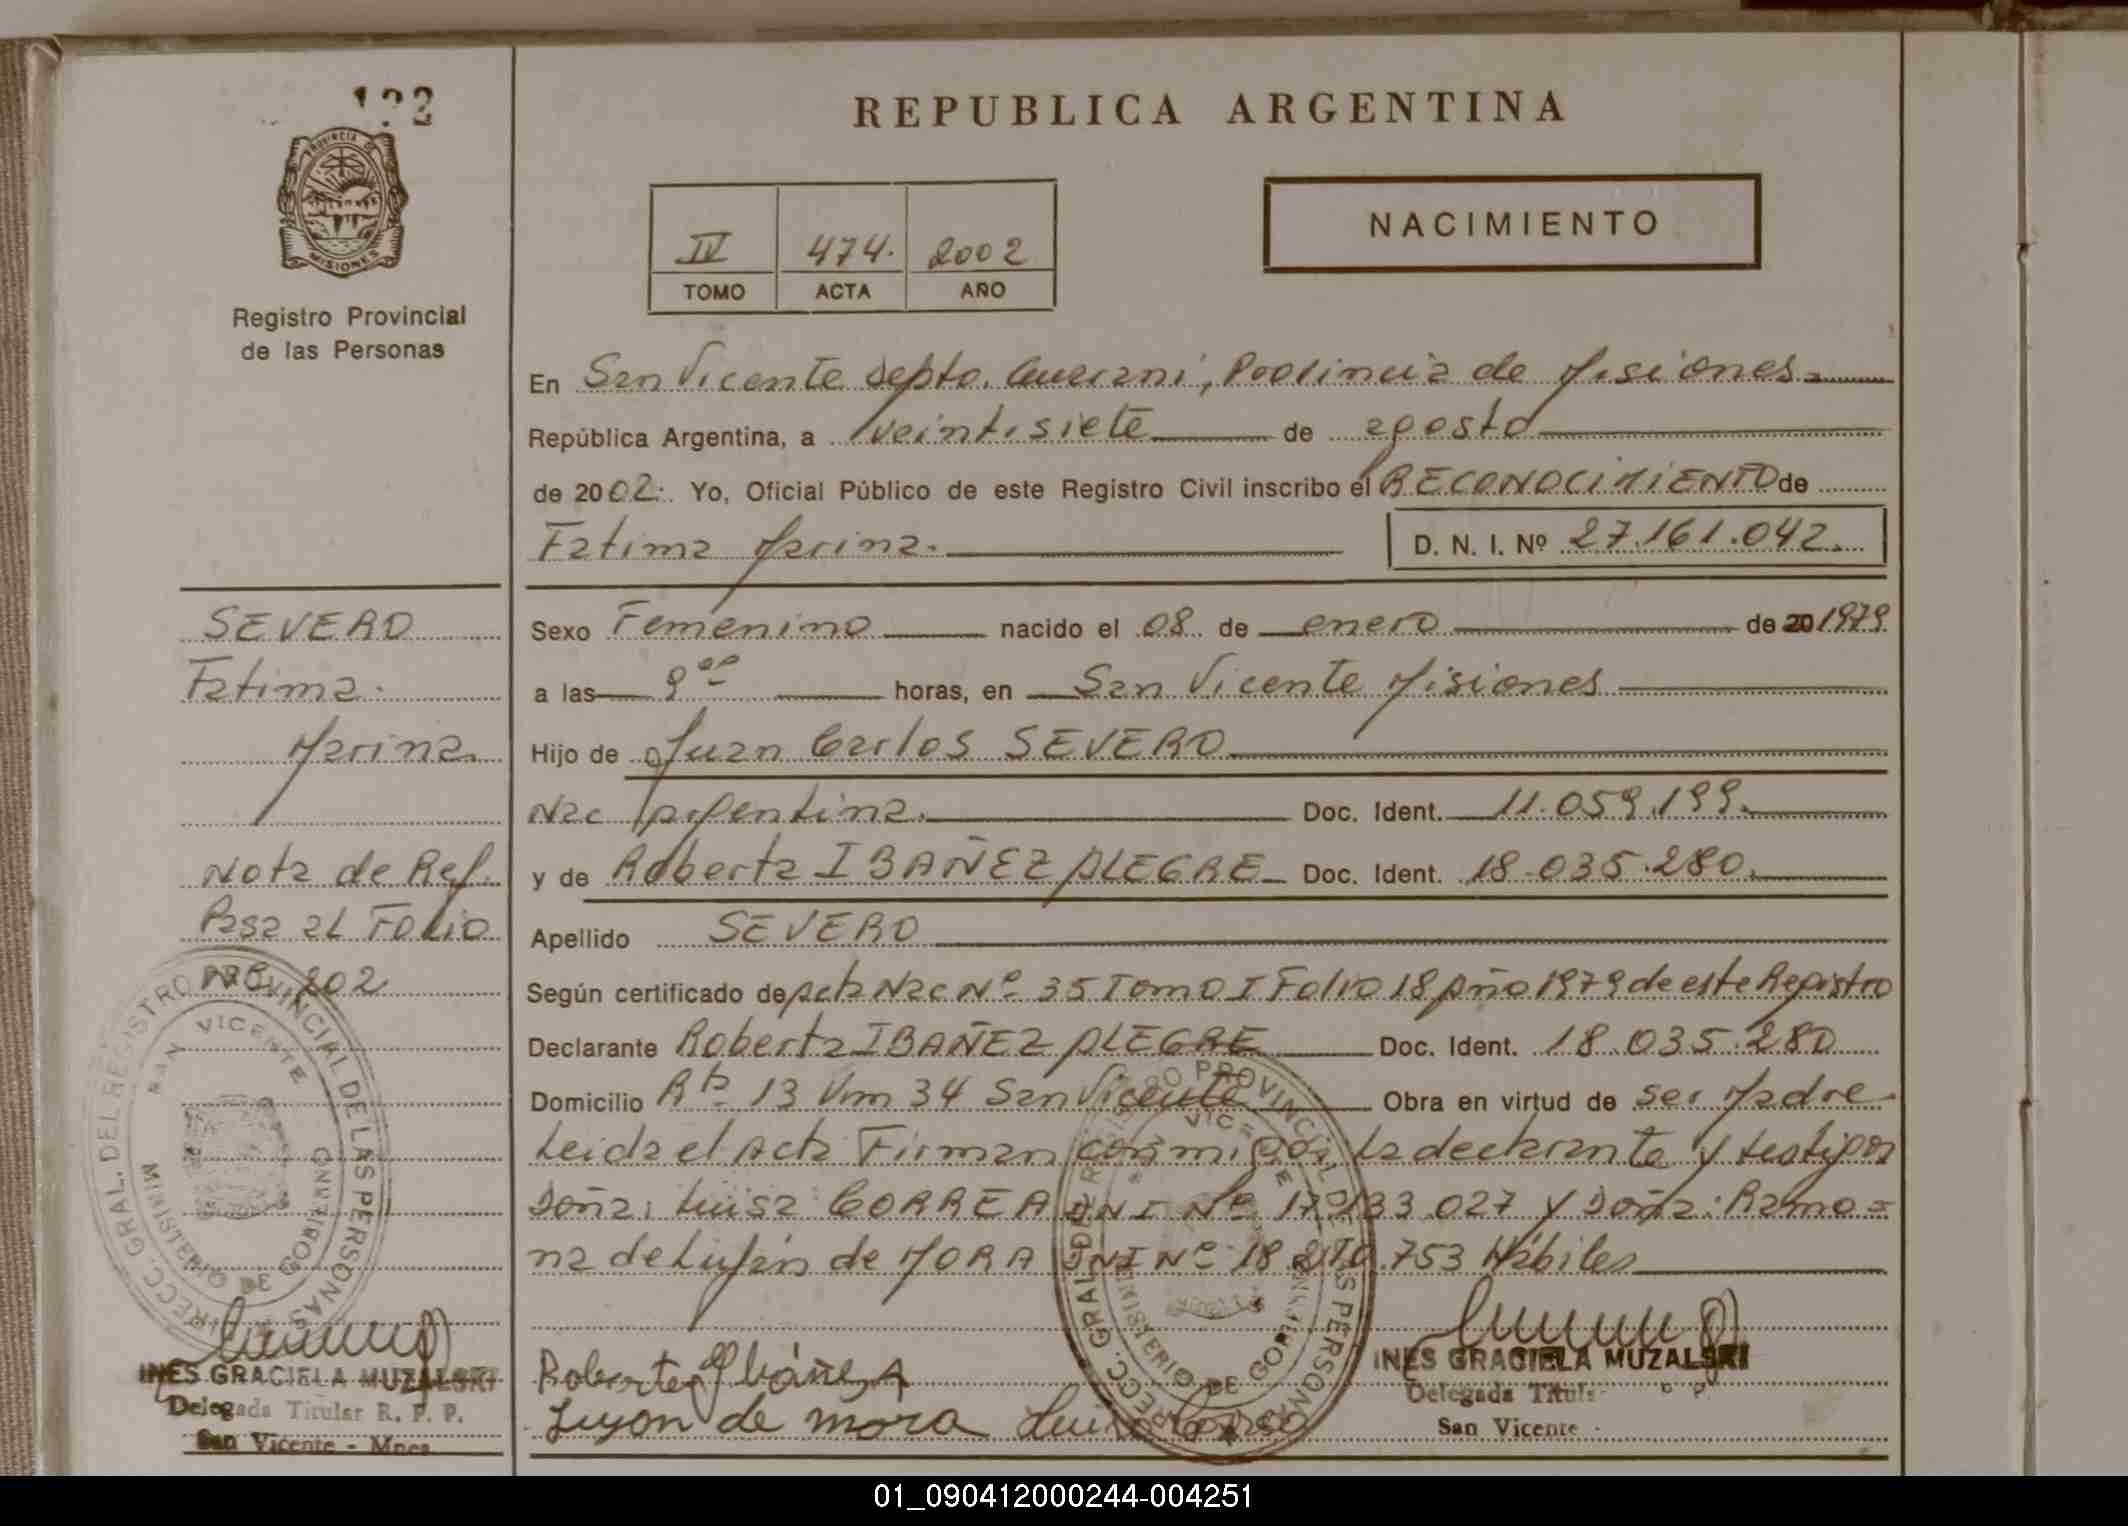 122
REPUBLICA ARGENTINA
PROVINCIA DE
MISIONES
Registro Provincial
de las Personas
IV 474. 2002
TOMO ACTA AÑO
NACIMIENTO
En San Vicente Depto. Guaraní, Provincia de Misiones
República Argentina, a veintisiete de agosto
de 2002. Yo, Oficial Público de este Registro Civil inscribo el RECONOCIMIENTO de
Fatima Marina. D. N. I. Nº 27.161.042.
Sexo Femenino nacido el 08 de enero de 20 1979
a las 9 00 horas, en San Vicente Misiones
Hijo de Juan Carlos SEVERO
Nac Argentina. Doc. Ident. 11.059.199.
y de Roberta IBAÑEZ ALEGRE Doc. Ident. 18.035.280.
Apellido SEVERO
Según certificado de Acta Nac Nº 35 Tomo I Folio 18 Año 1979 de este Registro
Declarante Roberta IBAÑEZ ALEGRE Doc. Ident. 18.035.280
Domicilio Rta 13 Km 34 San Vicente Obra en virtud de ser Madre
Leida el Acta Firman conmigo, la declarante y testigos
Doña: Luisa CORREA DNI Nº 17. 33.027 y Doña: Ramo=
na de Luján de MORA DNI Nº 18. .753 Hábiles
SEVERO
Fatima
Marina.
Nota de Ref.
Pasa al Folio
Nº 202
DIRECC. GRAL. DEL REGISTRO PROVINCIAL DE LAS PERSONAS
SAN VICENTE
MINISTERIO DE GOBIERNO
INES GRACIELA MUZALSKI
Delegada Titular R. P. P.
San Vicente - Mnes
Roberta Ibáñez A
Lujan de mora Luisa Correa
DIRECC. GRAL. DEL REGISTRO PROVINCIAL DE LAS PERSONAS
MINISTERIO DE GOBIERNO
INES GRACIELA MUZALSKI
Delegada Titular
San Vicente
01_090412000244-004251